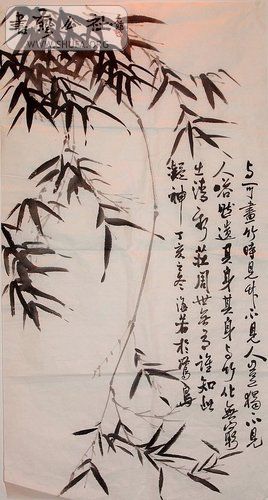 与可畫竹時見竹不見人豈獨不見
人嗒然遺其身其身与竹化無窮
出清新莊周世無有誰知此
凝神 丁亥之冬 海若於鷺島